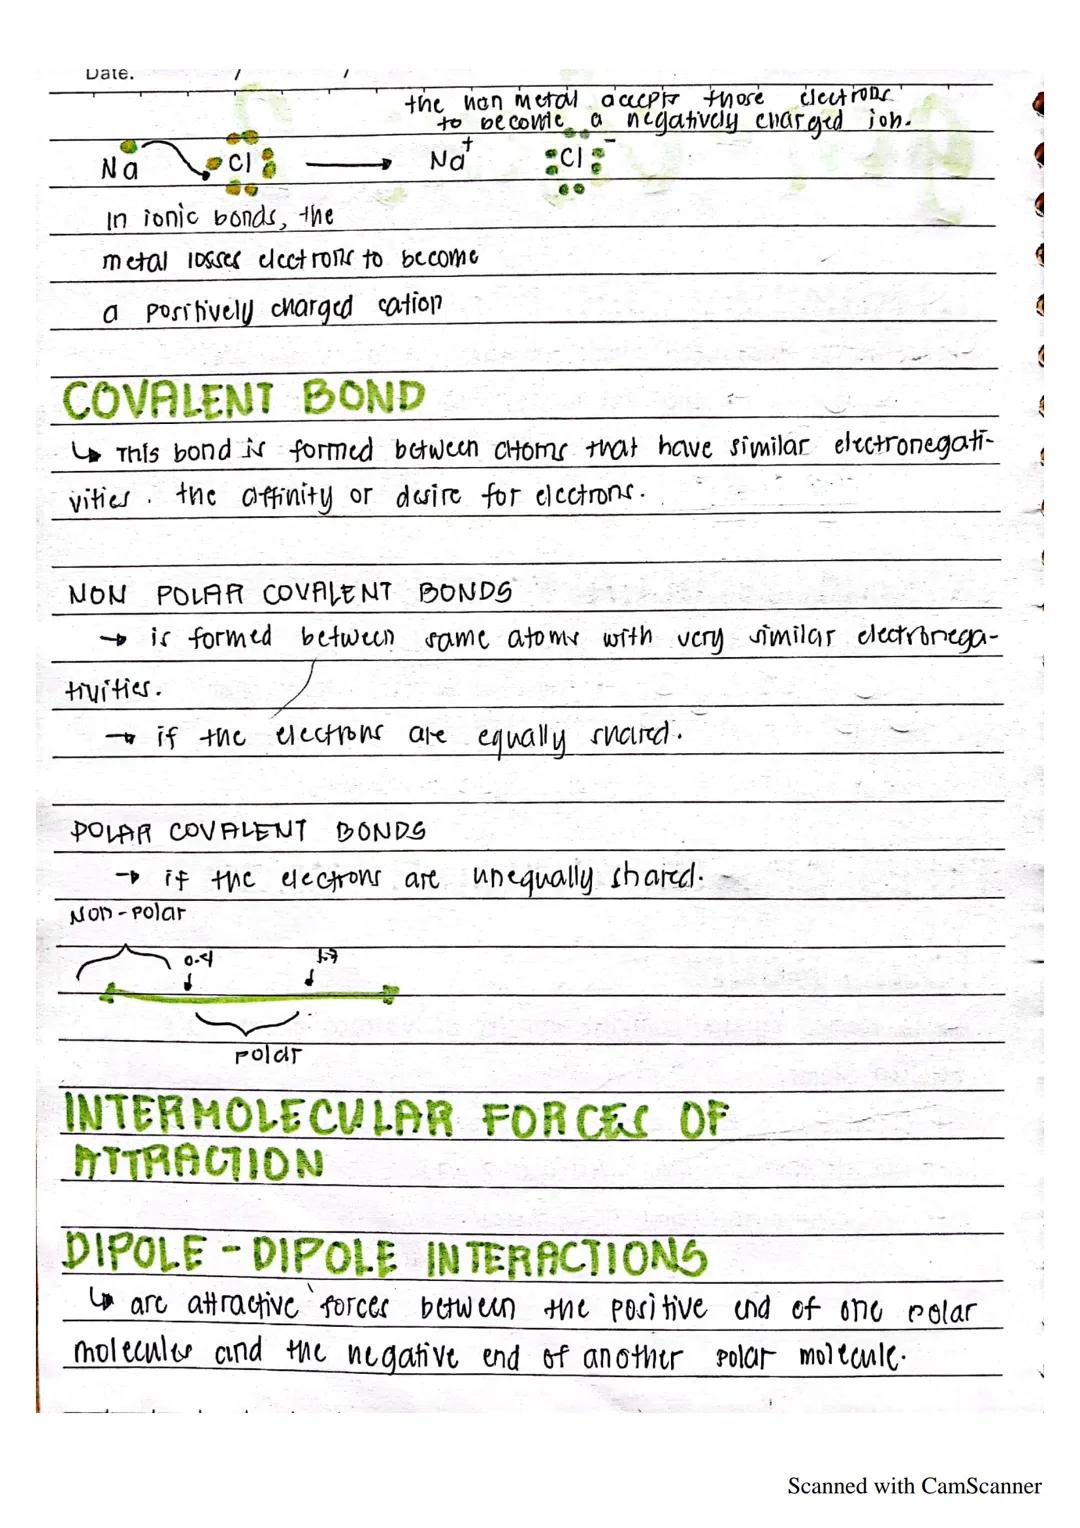 Date. / /
the non metal accepts those electrons
to become a negatively charged ion.
Na Cl → Na+ Cl-
In ionic bonds, the
metal losses electrons to become
a positively charged cation
COVALENT BOND
↳ This bond is formed between atoms that have similar electronegati-
vities. the affinity or desire for electrons.
NON POLAR COVALENT BONDS
→ is formed between same atoms with very similar electronega-
tivities.
→ if the electrons are equally shared.
POLAR COVALENT BONDS
→ if the electrons are unequally shared.
Non-polar
0.4 1.7
polar
INTERMOLECULAR FORCES OF
ATTRACTION
DIPOLE-DIPOLE INTERACTIONS
↳ are attractive forces between the positive end of one polar
molecules and the negative end of another polar molecule.
Scanned with CamScanner